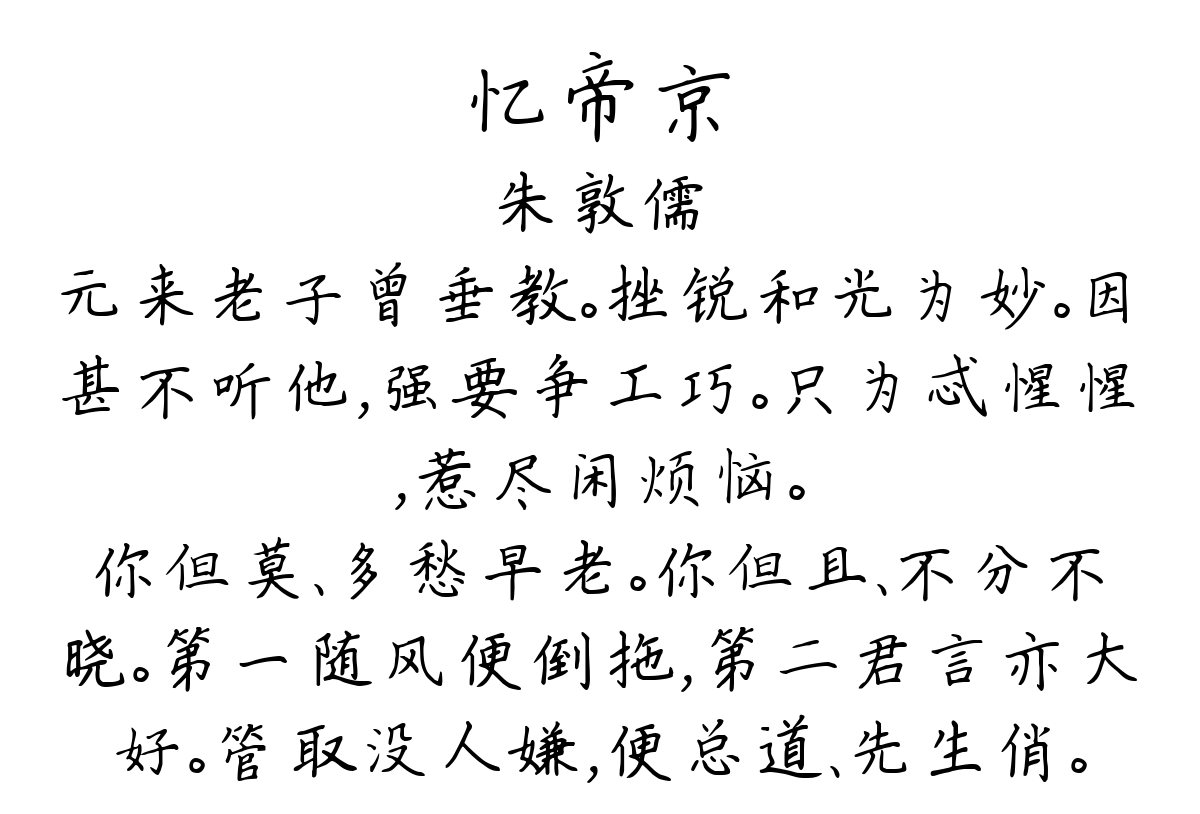 忆帝京
朱敦儒
元来老子曾垂教。挫锐和光为妙。因
甚不听他,强要争工巧。只为忒惺惺
,惹尽闲烦恼。
你但莫、多愁早老。你但且、不分不
晓。第一随风便倒拖,第二君言亦大
好。管取没人嫌,便总道、先生俏。